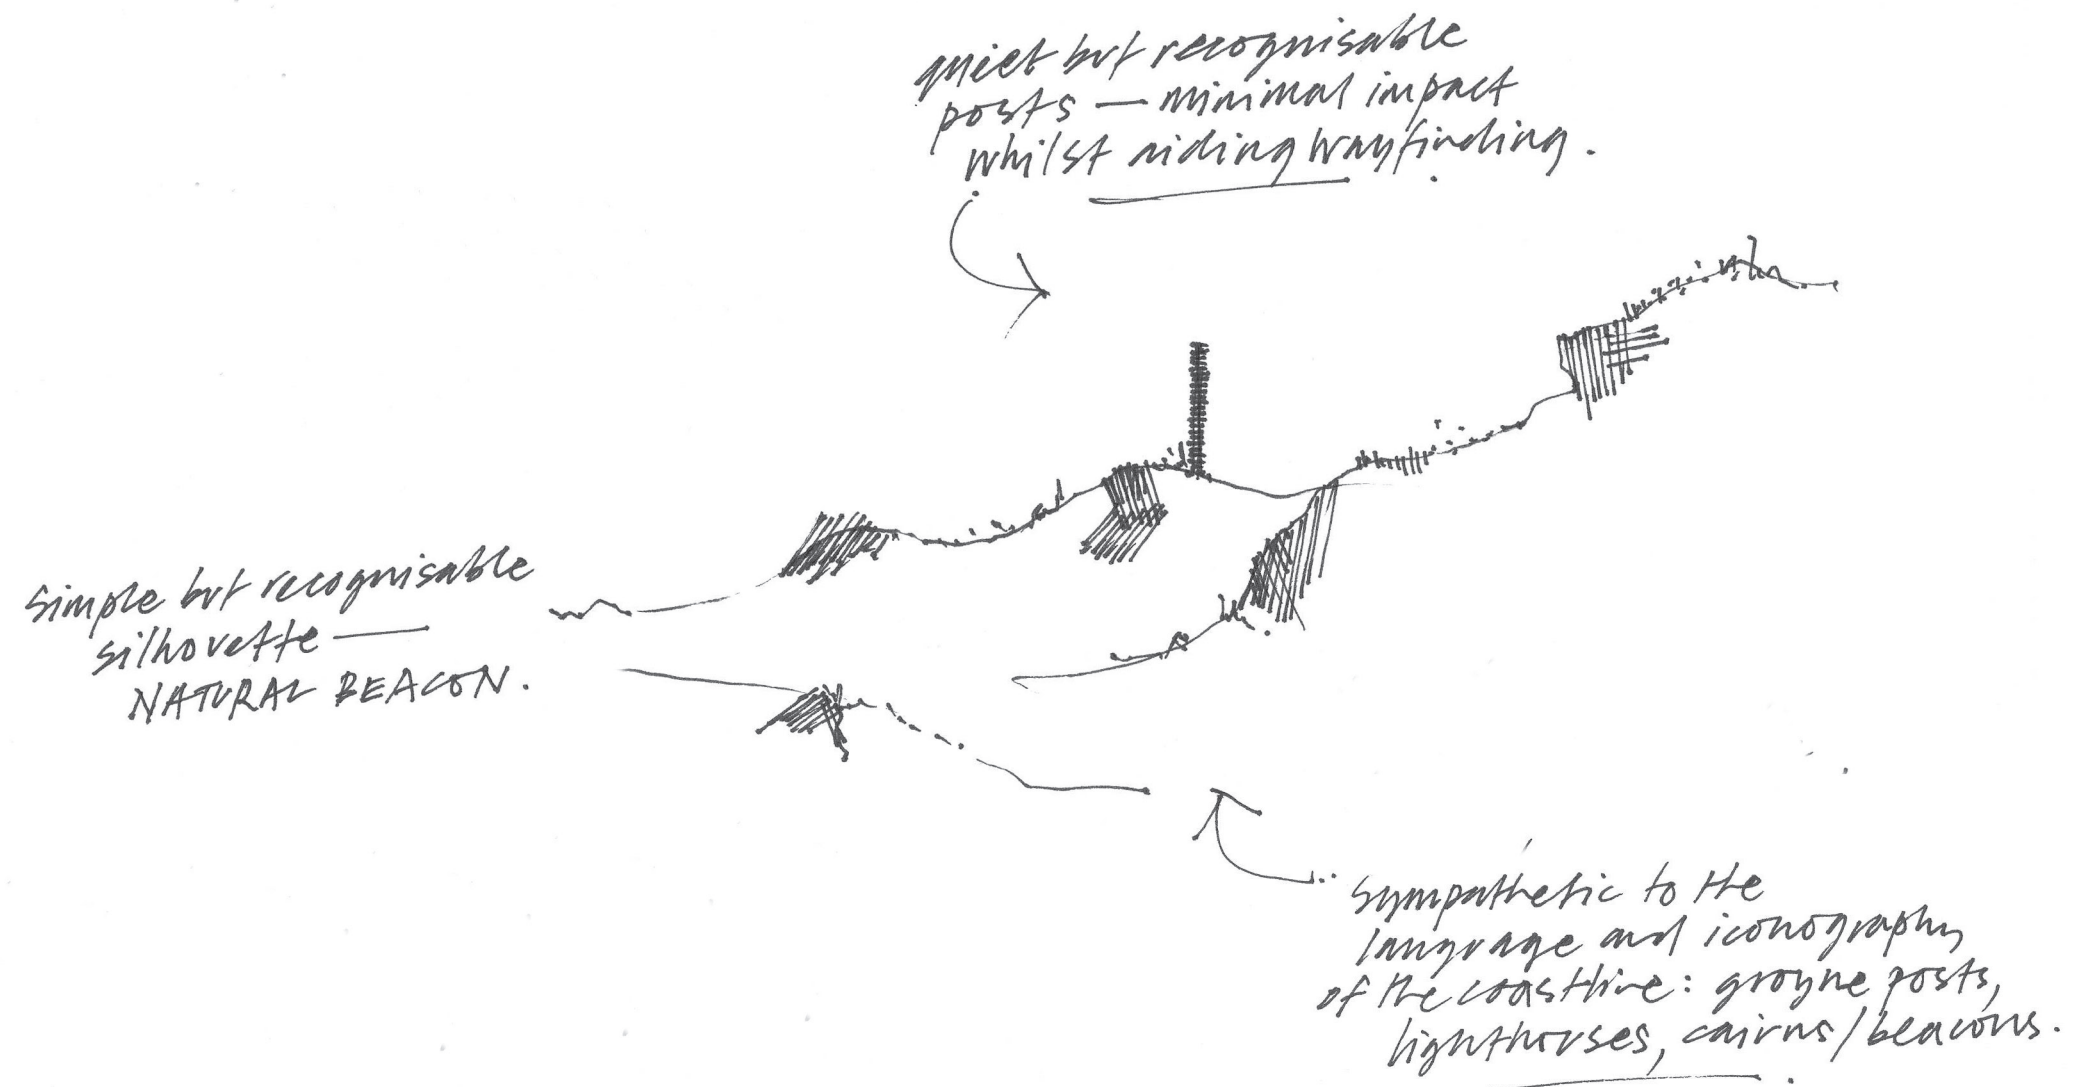 quiet but recognisable
posts — minimal impact
whilst aiding wayfinding.
simple but recognisable
silhouette —
NATURAL BEACON.
sympathetic to the
language and iconography
of the coastline: groyne posts,
lighthouses, cairns/beacons.